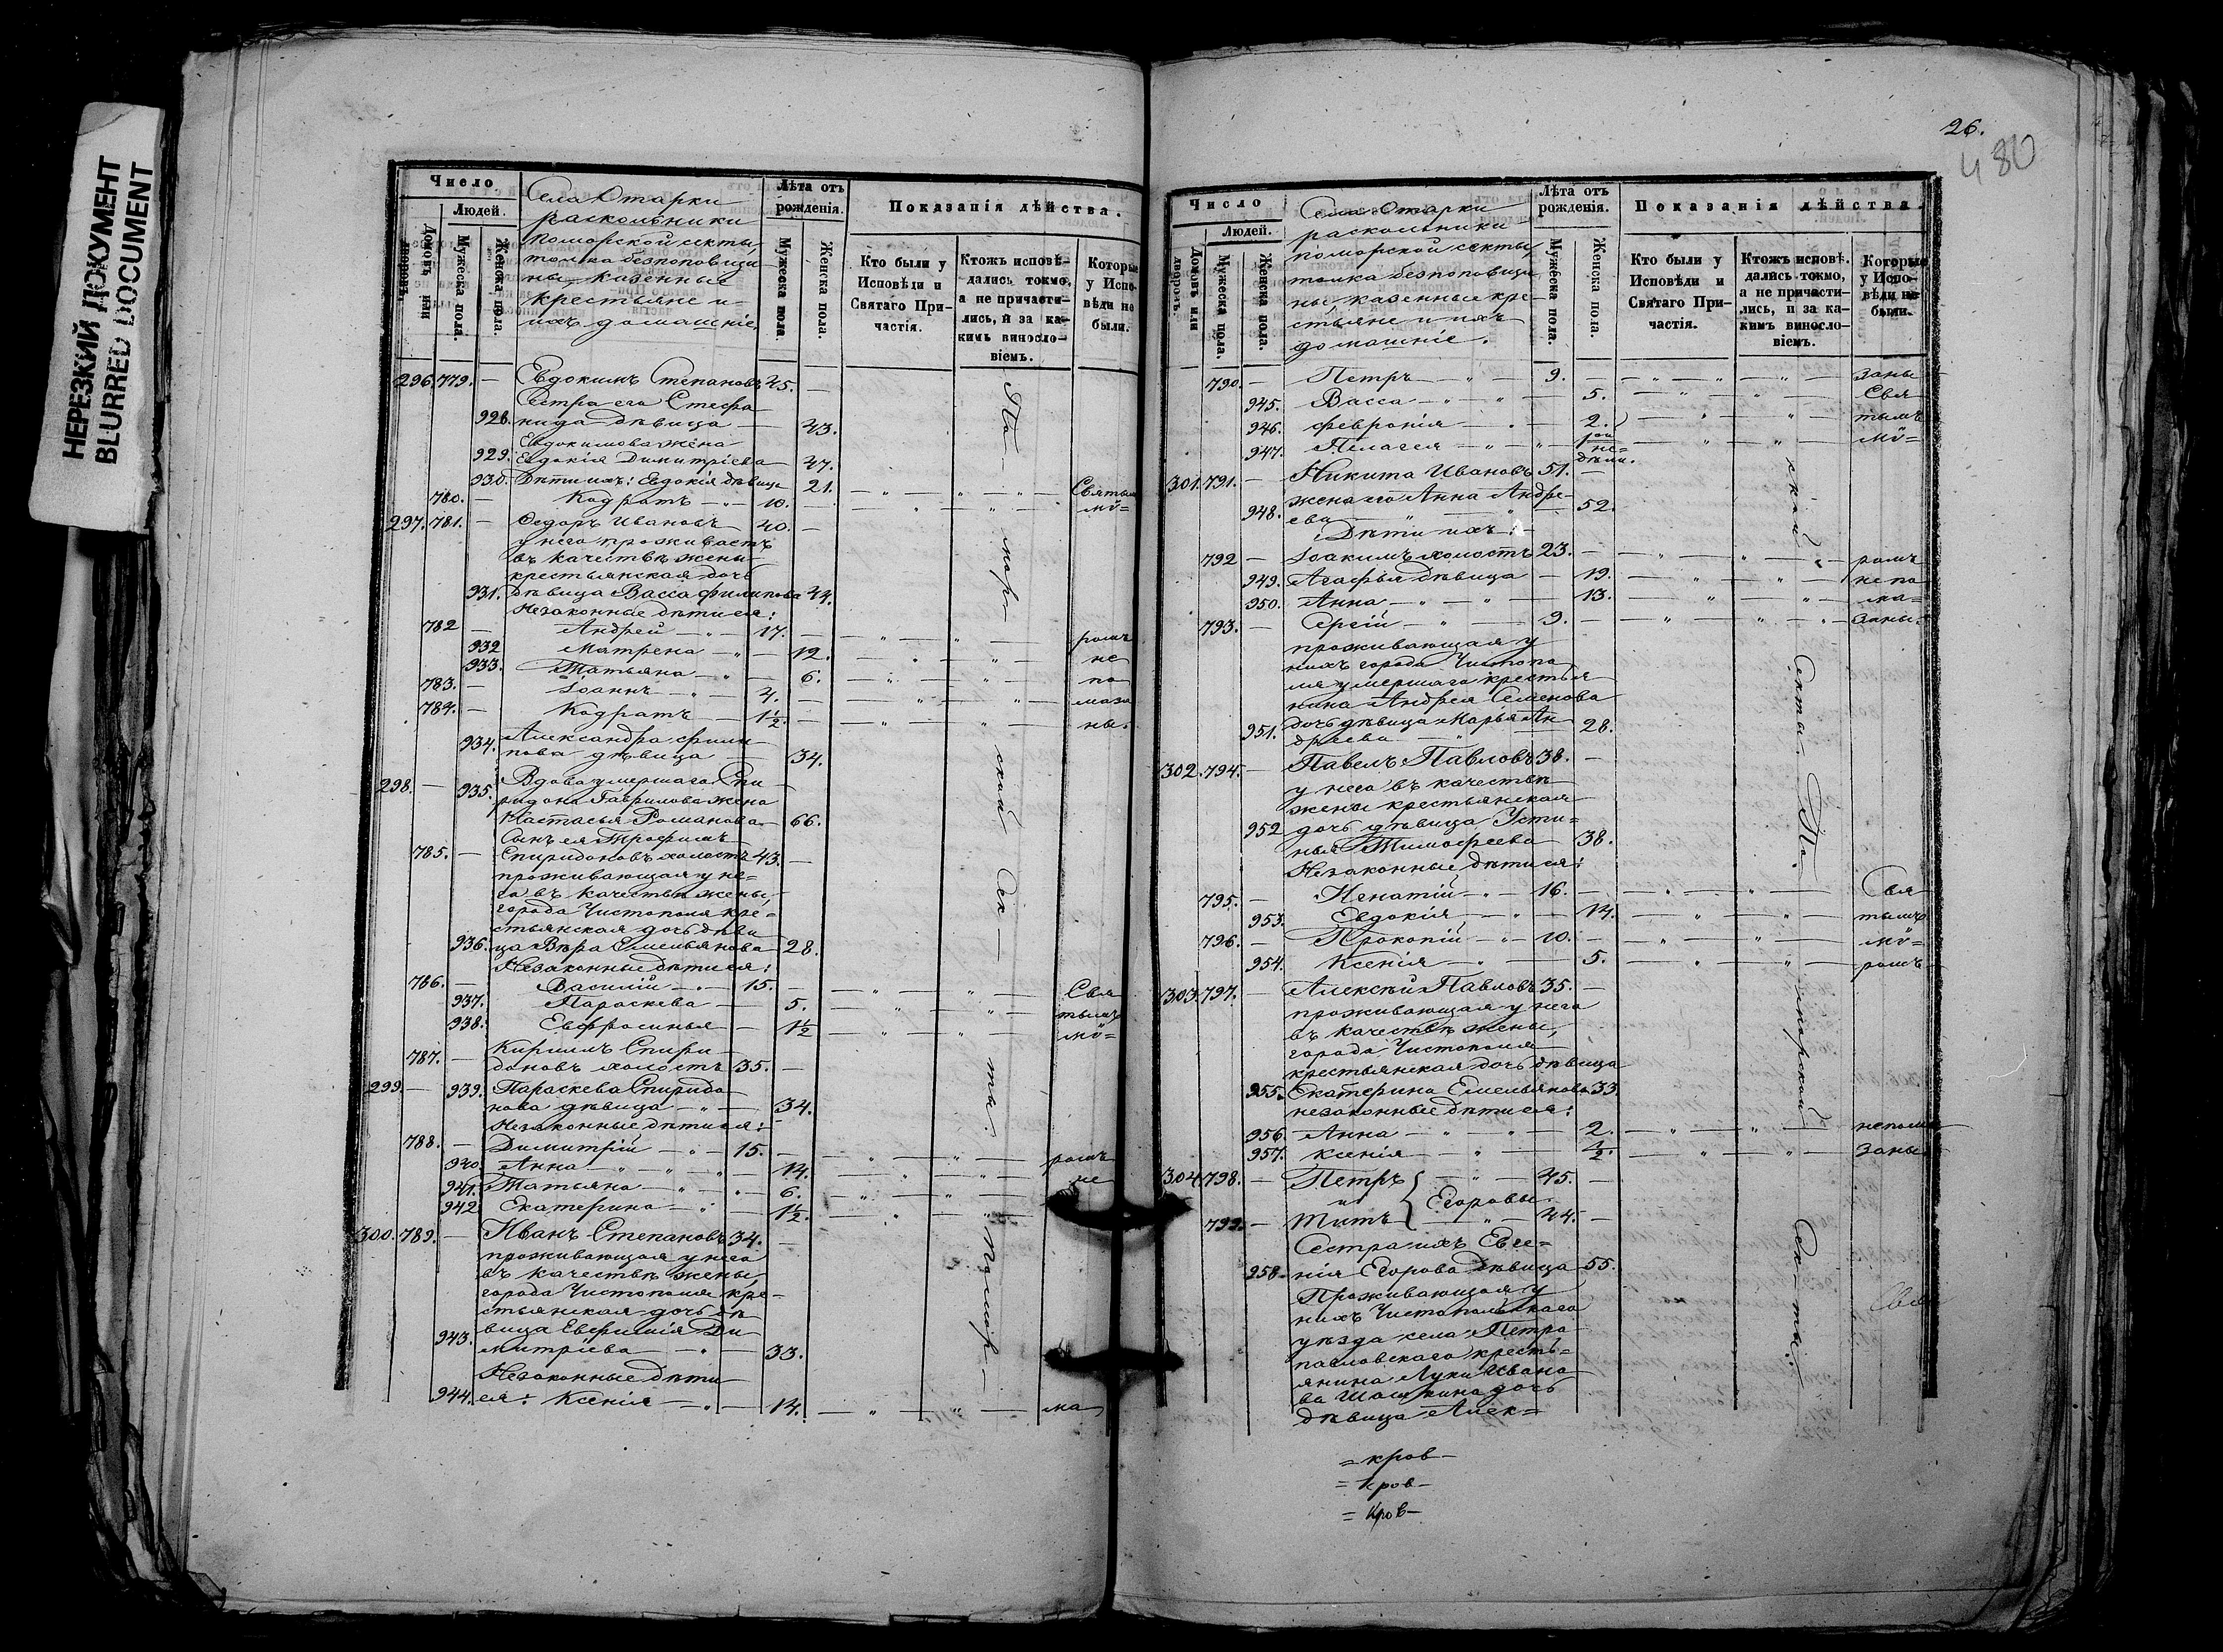 НЕРЕЗКИЙ ДОКУМЕНТ
BLURRED DOCUMENT
Число
Людей.
Домовъ или дворовъ.
Мужеска пола.
Женска пола.
Села Отарки
раскольники
поморской секты,
толка безпоповщи
ны, казенные
крестьяне и
ихъ домашніе.
Лѣта отъ рожденія.
Мужеска пола.
Женска пола.
Показанія дѣйства.
Кто были у Исповѣди и Святаго Причастія.
Ктожъ исповѣдались токмо, а не причастились, и за какимъ винословіемъ.
Которые у Исповѣди не были.
296. 779. — Евдокимъ Степановъ 45. —
Сестра его Стефа
928. нида дѣвица — 43.
Евдокимова жена
929. Евдокія Димитріева 47.
930. Дѣти ихъ: Евдокія дѣвица 21. — Святым
780. — Кодратъ — 10. — мѵ=
297. 781. — Федоръ Ивановъ 40. —
у него проживаетъ
въ качествѣ жены
крестьянская дочь
931. дѣвица Васса Филипова 44.
Незаконные дѣти ея:
782 — Андрей — 17. — ромъ
932 Матрена — 12. — не
933. Татьяна — 6. — по
783. — Іоаннъ — 4. — маза
784. — Кодратъ — 1½. — ны.
Александра Фили
934. пова дѣвица — 34.
298. — 935. Вдова умершаго Спи
ридона Гаврилова жена
Настасья Романова 66.
Сынъ ея Трофимъ
785. — Спиридоновъ холостъ 43. —
проживающая у не=
го въ качествѣ жены,
города Чистополя кре=
стьянская дочь дѣви
936. ца Вѣра Емельянова 28.
Незаконные дѣти ея:
786. — Василій — 15. — Свя
937. Параскева — 5. — тымъ
938. Евфросинья — 1½ — мѵ=
Кирилъ Спири
787. — доновъ холостъ 35. —
299. — 939. Параскева Спиридо
нова дѣвица — 34.
Незаконные дѣти ея:
788. — Димитрій — 15. — ромъ
940. Анна — 14. — не
941. Татьяна — 6. —
942 Екатерина — 1½. —
300. 789. — Иванъ Степановъ 34. —
проживающая у него
въ качествѣ жены,
города Чистополя кре=
стьянская дочь дѣ
943. вица Евфимія Ди
митріева — 33.
Незаконные дѣти
944. ея: Ксенія — 14. — ма
По—мор—ской Сек—ты. Помор—
26.
480
Число
Людей.
Домовъ или дворовъ.
Мужеска пола.
Женска пола.
Села Отарки
раскольники
поморской секты,
толка безпоповщи
ны, казенные кре=
стьяне и ихъ
домашніе.
Лѣта отъ рожденія.
Мужеска пола.
Женска пола.
Показанія дѣйства.
Кто были у Исповѣди и Святаго Причастія.
Ктожъ исповѣдались токмо, а не причастились, и за какимъ винословіемъ.
Которые у Исповѣди не были.
790. — Петръ — 9. — заны
945. Васса — 5. — Свя
946. Февронія — 2. — тымъ
947. Пелагея — 1ой недѣли. — мѵ=
301. 791. — Никита Ивановъ 51. —
жена его Анна Андре
948. ева — 52.
Дѣти ихъ:
792 — Іоакимъ холостъ 23. — ромъ
949. Агафья дѣвица — 19. — не по
950. Анна — 13. — ма=
793. — Сергій — 9. — заны.
проживающая у
нихъ города Чистопо
ля умершаго крестья
нина Андрея Семенова
951. дочь дѣвица Марья Ан
дреева — 28.
302. 794. — Павелъ Павловъ 38. —
у него въ качествѣ
жены крестьянская
952 дочь дѣвица Усти=
нья Тимофеева 38.
Незаконные дѣти ея:
795. — Игнатій — 16. — Свя
953. Евдокія — 14. — тымъ
796. — Прокопій — 10. — мѵ=
954. Ксенія — 5. — ромъ
303. 797. — Алексѣй Павловъ 35. —
проживающая у него
въ качествѣ жены,
города Чистополя
крестьянская дочь дѣвица
955. Екатерина Емельянова 33.
незаконные дѣти ея:
956. Анна — 2. — непома
957. Ксенія — ½. — заны
304. 798. — Петръ — 45. —
и Егоровы
799. — Титъ — 44. —
Сестра ихъ Евге=
958. нія Егорова дѣвица 55.
Проживающая у
нихъ Чистопольскаго
уѣзда села Петро
павловскаго кресть=
янина Луки Ивано
ва дочь
дѣвица Алек=
ской Секты По. морской Сек—ты.
Свя
= кров —
= кров —
= кров —